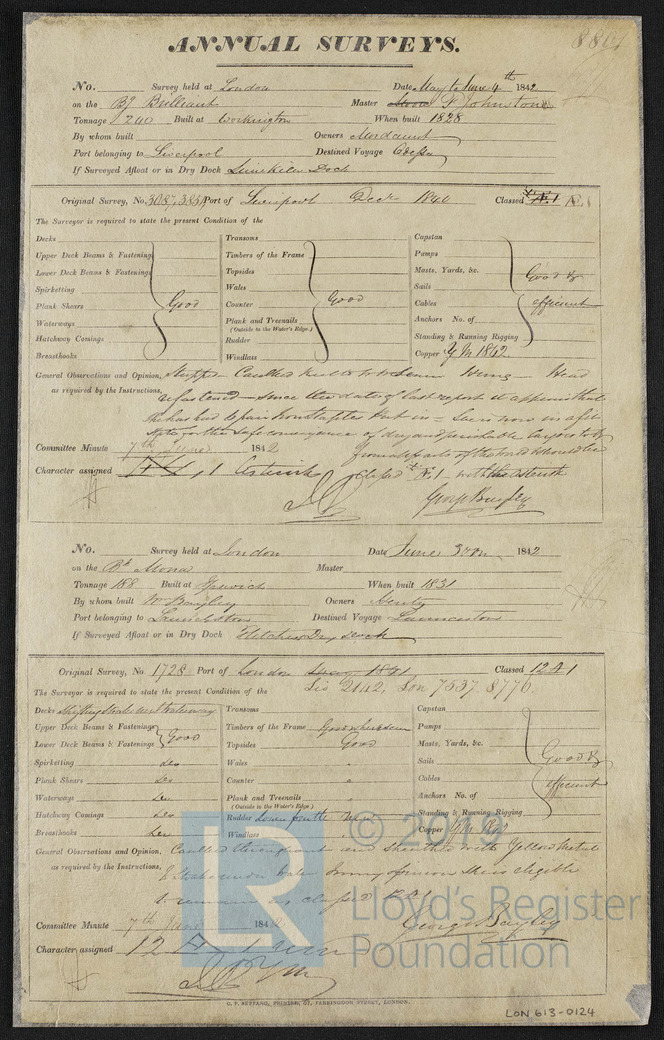 ANNUAL SURVEYS. 8801
No. Survey held at London Date May to June 4th 1842
on the Bg Brilliant Master F Johnstone
Tonnage 240 Built at Workington When built 1828
By whom built Owners Mordaunt
Port belonging to Liverpool Destined Voyage Odessa
If Surveyed Afloat or in Dry Dock Limekiln Dock
Original Survey, No. Port of Liverpool Decr 1840 Classed Æ 1
The Surveyor is required to state the present Condition of the
Decks Transoms Capstan
Upper Deck Beams & Fastenings Timbers of the Frame Pumps
Lower Deck Beams & Fastenings Topsides Masts, Yards, &c. Good &
Spirketting Wales Sails
Plank Shears Good Counter Good Cables efficient
Waterways Plank and Treenails Anchors No. of
(Outside to the Water's Edge.)
Hatchway Comings Rudder Standing & Running Rigging
Breasthooks Windlass Copper YM 1842
General Observations and Opinion, Stripped Caulked
as required by the Instructions, refastened – since the date of last report it appears that
she has had repair Iron Staples put in – She is now in a fit
state for the safe conveyance of dry and perishable cargoes to &
Committee Minute 7th June 1842 from all parts of the world
Character assigned Classed Æ 1 with the asterisk
George Bayley
No. Survey held at London Date June 3rd 1842
on the Bk Mona Master
Tonnage 188 Built at Ipswich When built 1831
By whom built Wm Bayley Owners Henty
Port belonging to Launceston Destined Voyage Launceston
If Surveyed Afloat or in Dry Dock Fletchers Dry Dock
Original Survey, No 1728 Port of London 1841 Classed 12 A 1
The Surveyor is required to state the present Condition of the Lis 2142, Lon 7537. 8776.
Decks Transoms Capstan
Upper Deck Beams & Fastenings Good Timbers of the Frame Good where seen Pumps
Lower Deck Beams & Fastenings Topsides Good Masts, Yards, &c.
Spirketting Do Wales Sails Good &
Plank Shears Do Counter Cables efficient
Waterways Do Plank and Treenails Anchors No. of
(Outside to the Water's Edge.)
Hatchway Comings Do Rudder Standing & Running Rigging
Breasthooks Do Windlass Copper YM 1842
General Observations and Opinion, Caulked throughout and sheathed with Yellow Metal
as required by the Instructions, In my opinion she is eligible
to remain as classed
Committee Minute 7th June 1842 George Bayley
Character assigned 12 A 1
G. F. SEYFANG, PRINTER, 57, FARRINGDON STREET, LONDON.
LR © 2019 Lloyd's Register Foundation
LON 613-0124